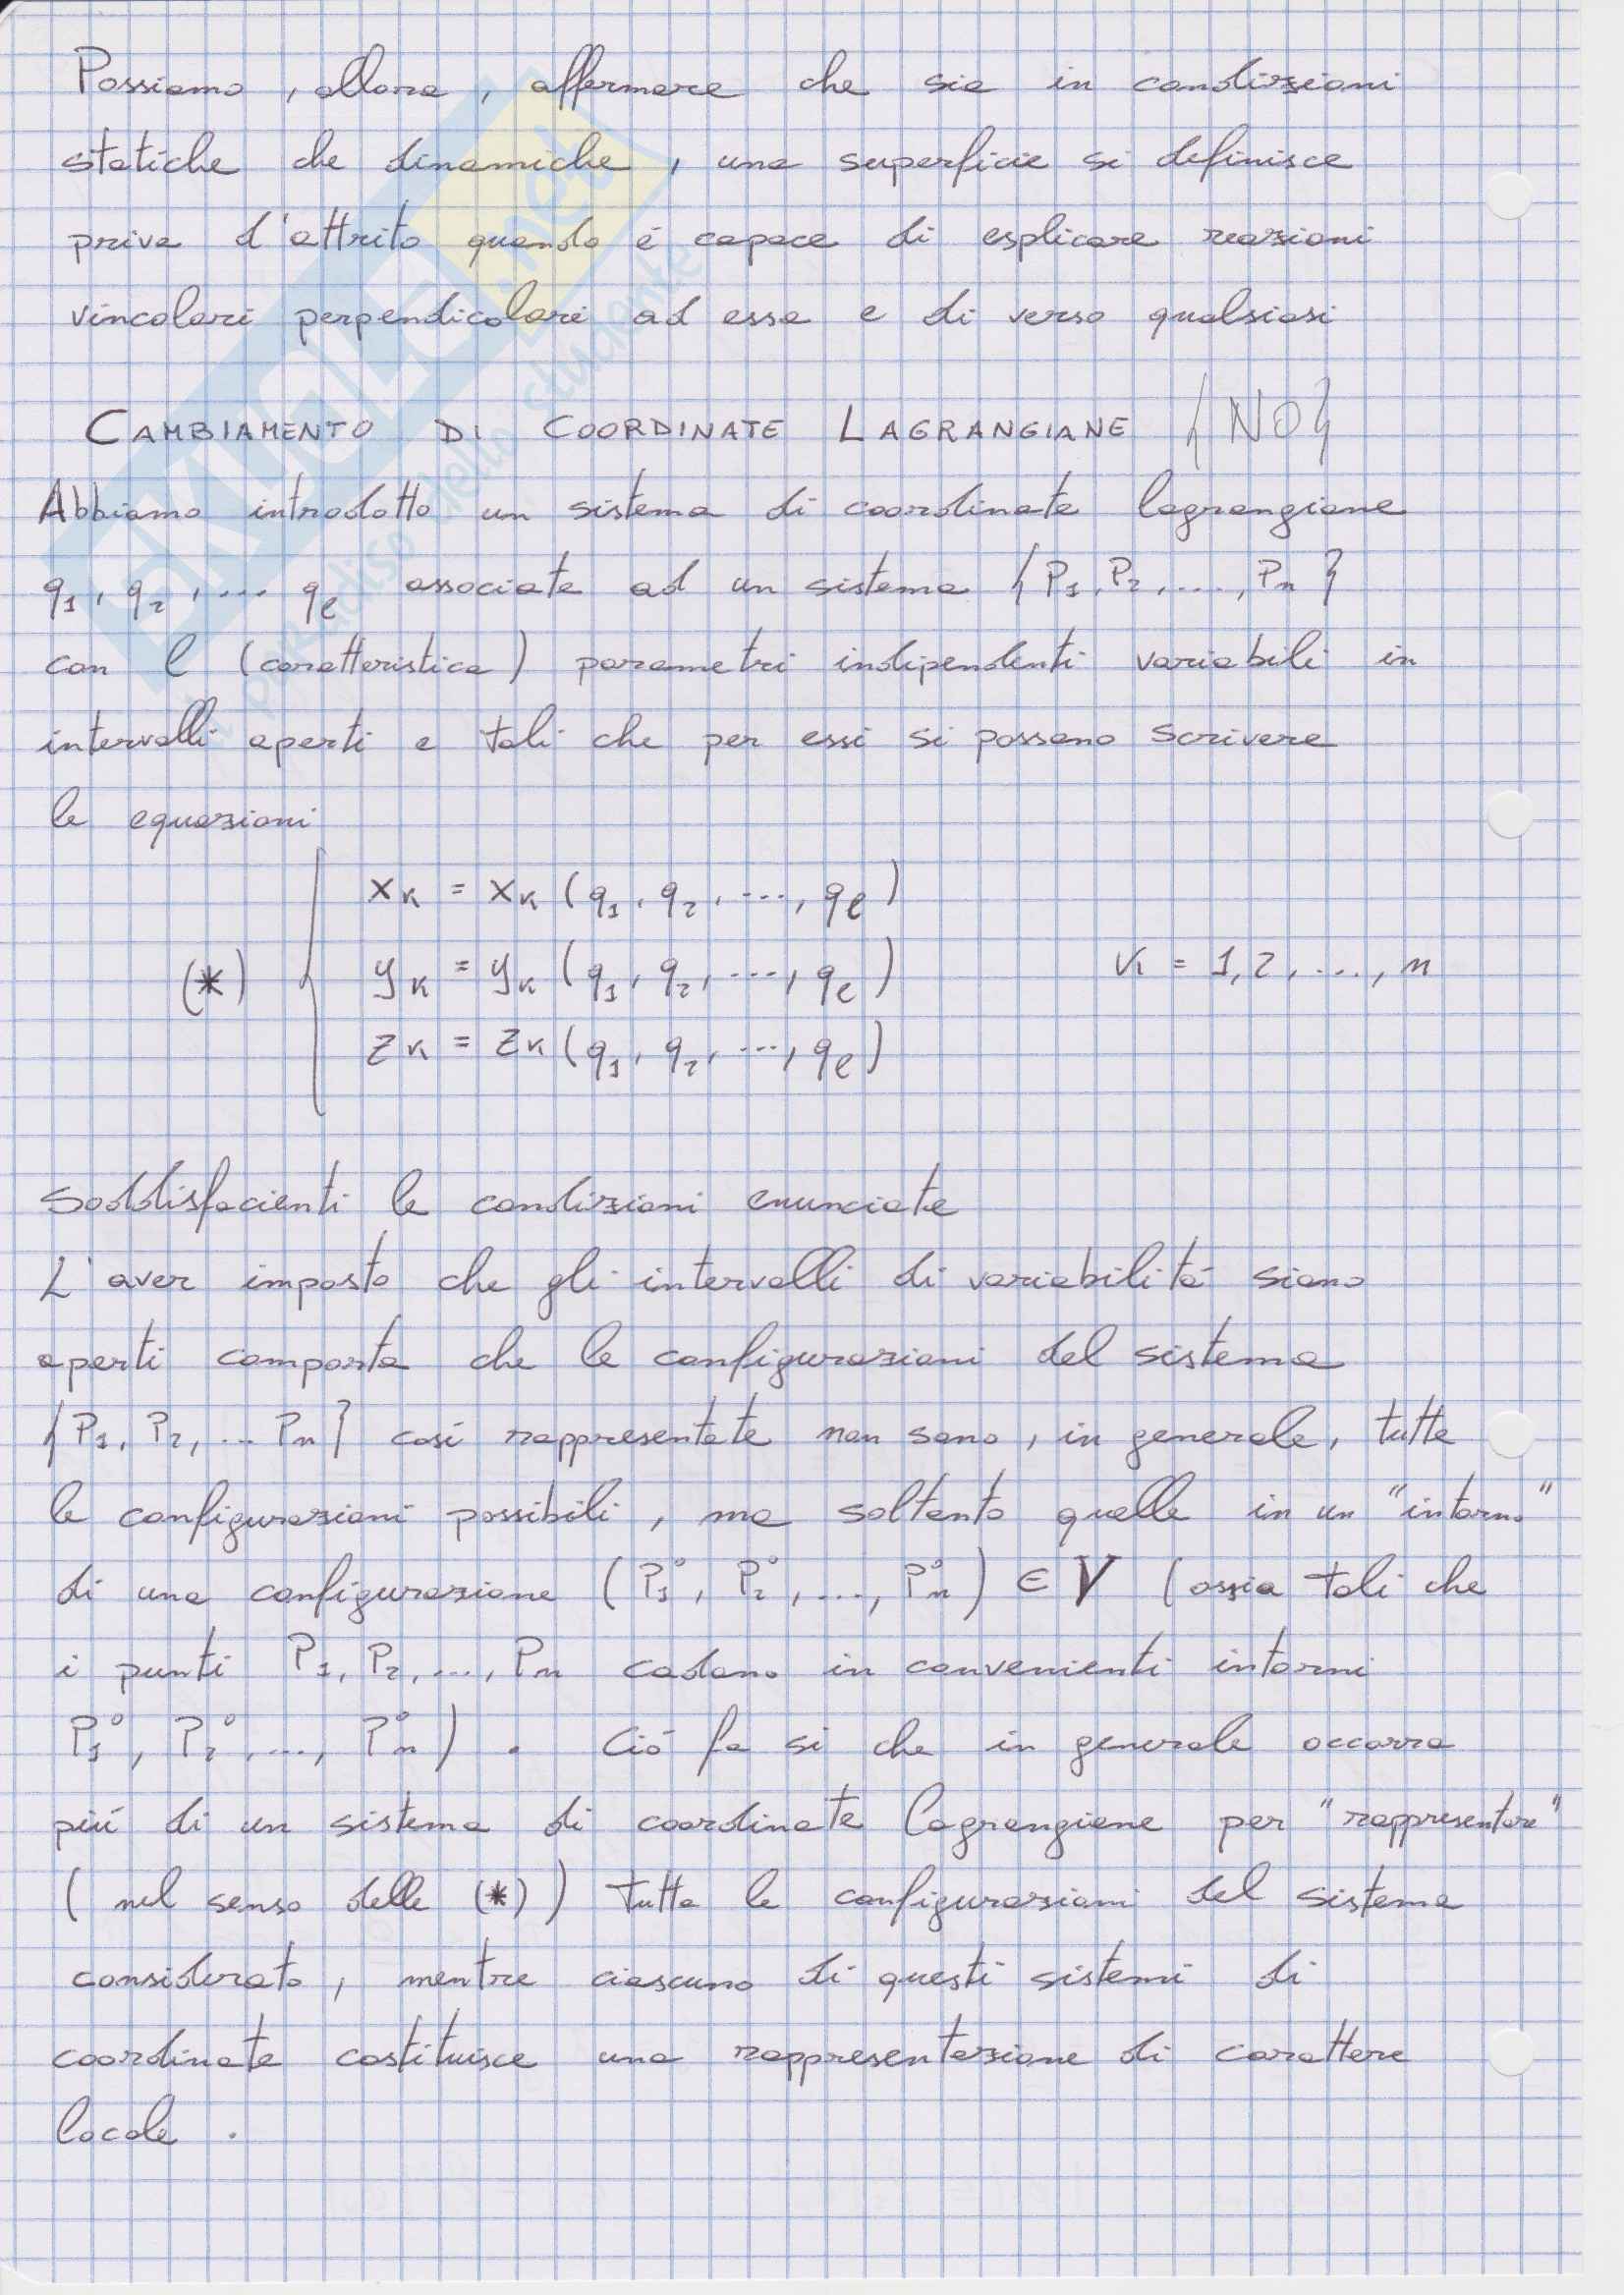 Possiamo, allora, affermare che sia in condizioni
statiche che dinamiche, una superficie si definisce
priva d'attrito quando é capace di esplicare reazioni
vincolari perpendicolari ad essa e di verso qualsiasi
CAMBIAMENTO DI COORDINATE LAGRANGIANE {NO}
Abbiamo introdotto un sistema di coordinate lagrangiane
q₁, q₂, ... qℓ associate ad un sistema {P₁, P₂, ..., Pₙ}
con ℓ (caratteristica) parametri indipendenti variabili in
intervalli aperti e tali che per essi si possano scrivere
le equazioni
xₖ = xₖ (q₁, q₂, ..., qℓ)
(*) yₖ = yₖ (q₁, q₂, ..., qℓ) k = 1,2, ..., n
zₖ = zₖ (q₁, q₂, ..., qℓ)
Soddisfacienti le condizioni enunciate
L'aver imposto che gli intervalli di variabilitá siano
aperti comporta che le configurazioni del sistema
{P₁, P₂, ... Pₙ} cosí rappresentate non sono, in generale, tutte
le configurazioni possibili, ma soltanto quelle in un "intorno"
di una configurazione (P₁°, P₂°, ..., Pₙ°) ∈ V (ossia tali che
i punti P₁, P₂, ..., Pₙ cadano in convenienti intorni
P₁°, P₂°, ..., Pₙ°). Ció fa si che in generale occorra
piú di un sistema di coordinate lagrangiane per "rappresentare"
(nel senso delle (*)) tutte le configurazioni del sistema
considerato, mentre ciascuno di questi sistemi di
coordinate costituisce una rappresentazione di carattere
locale.